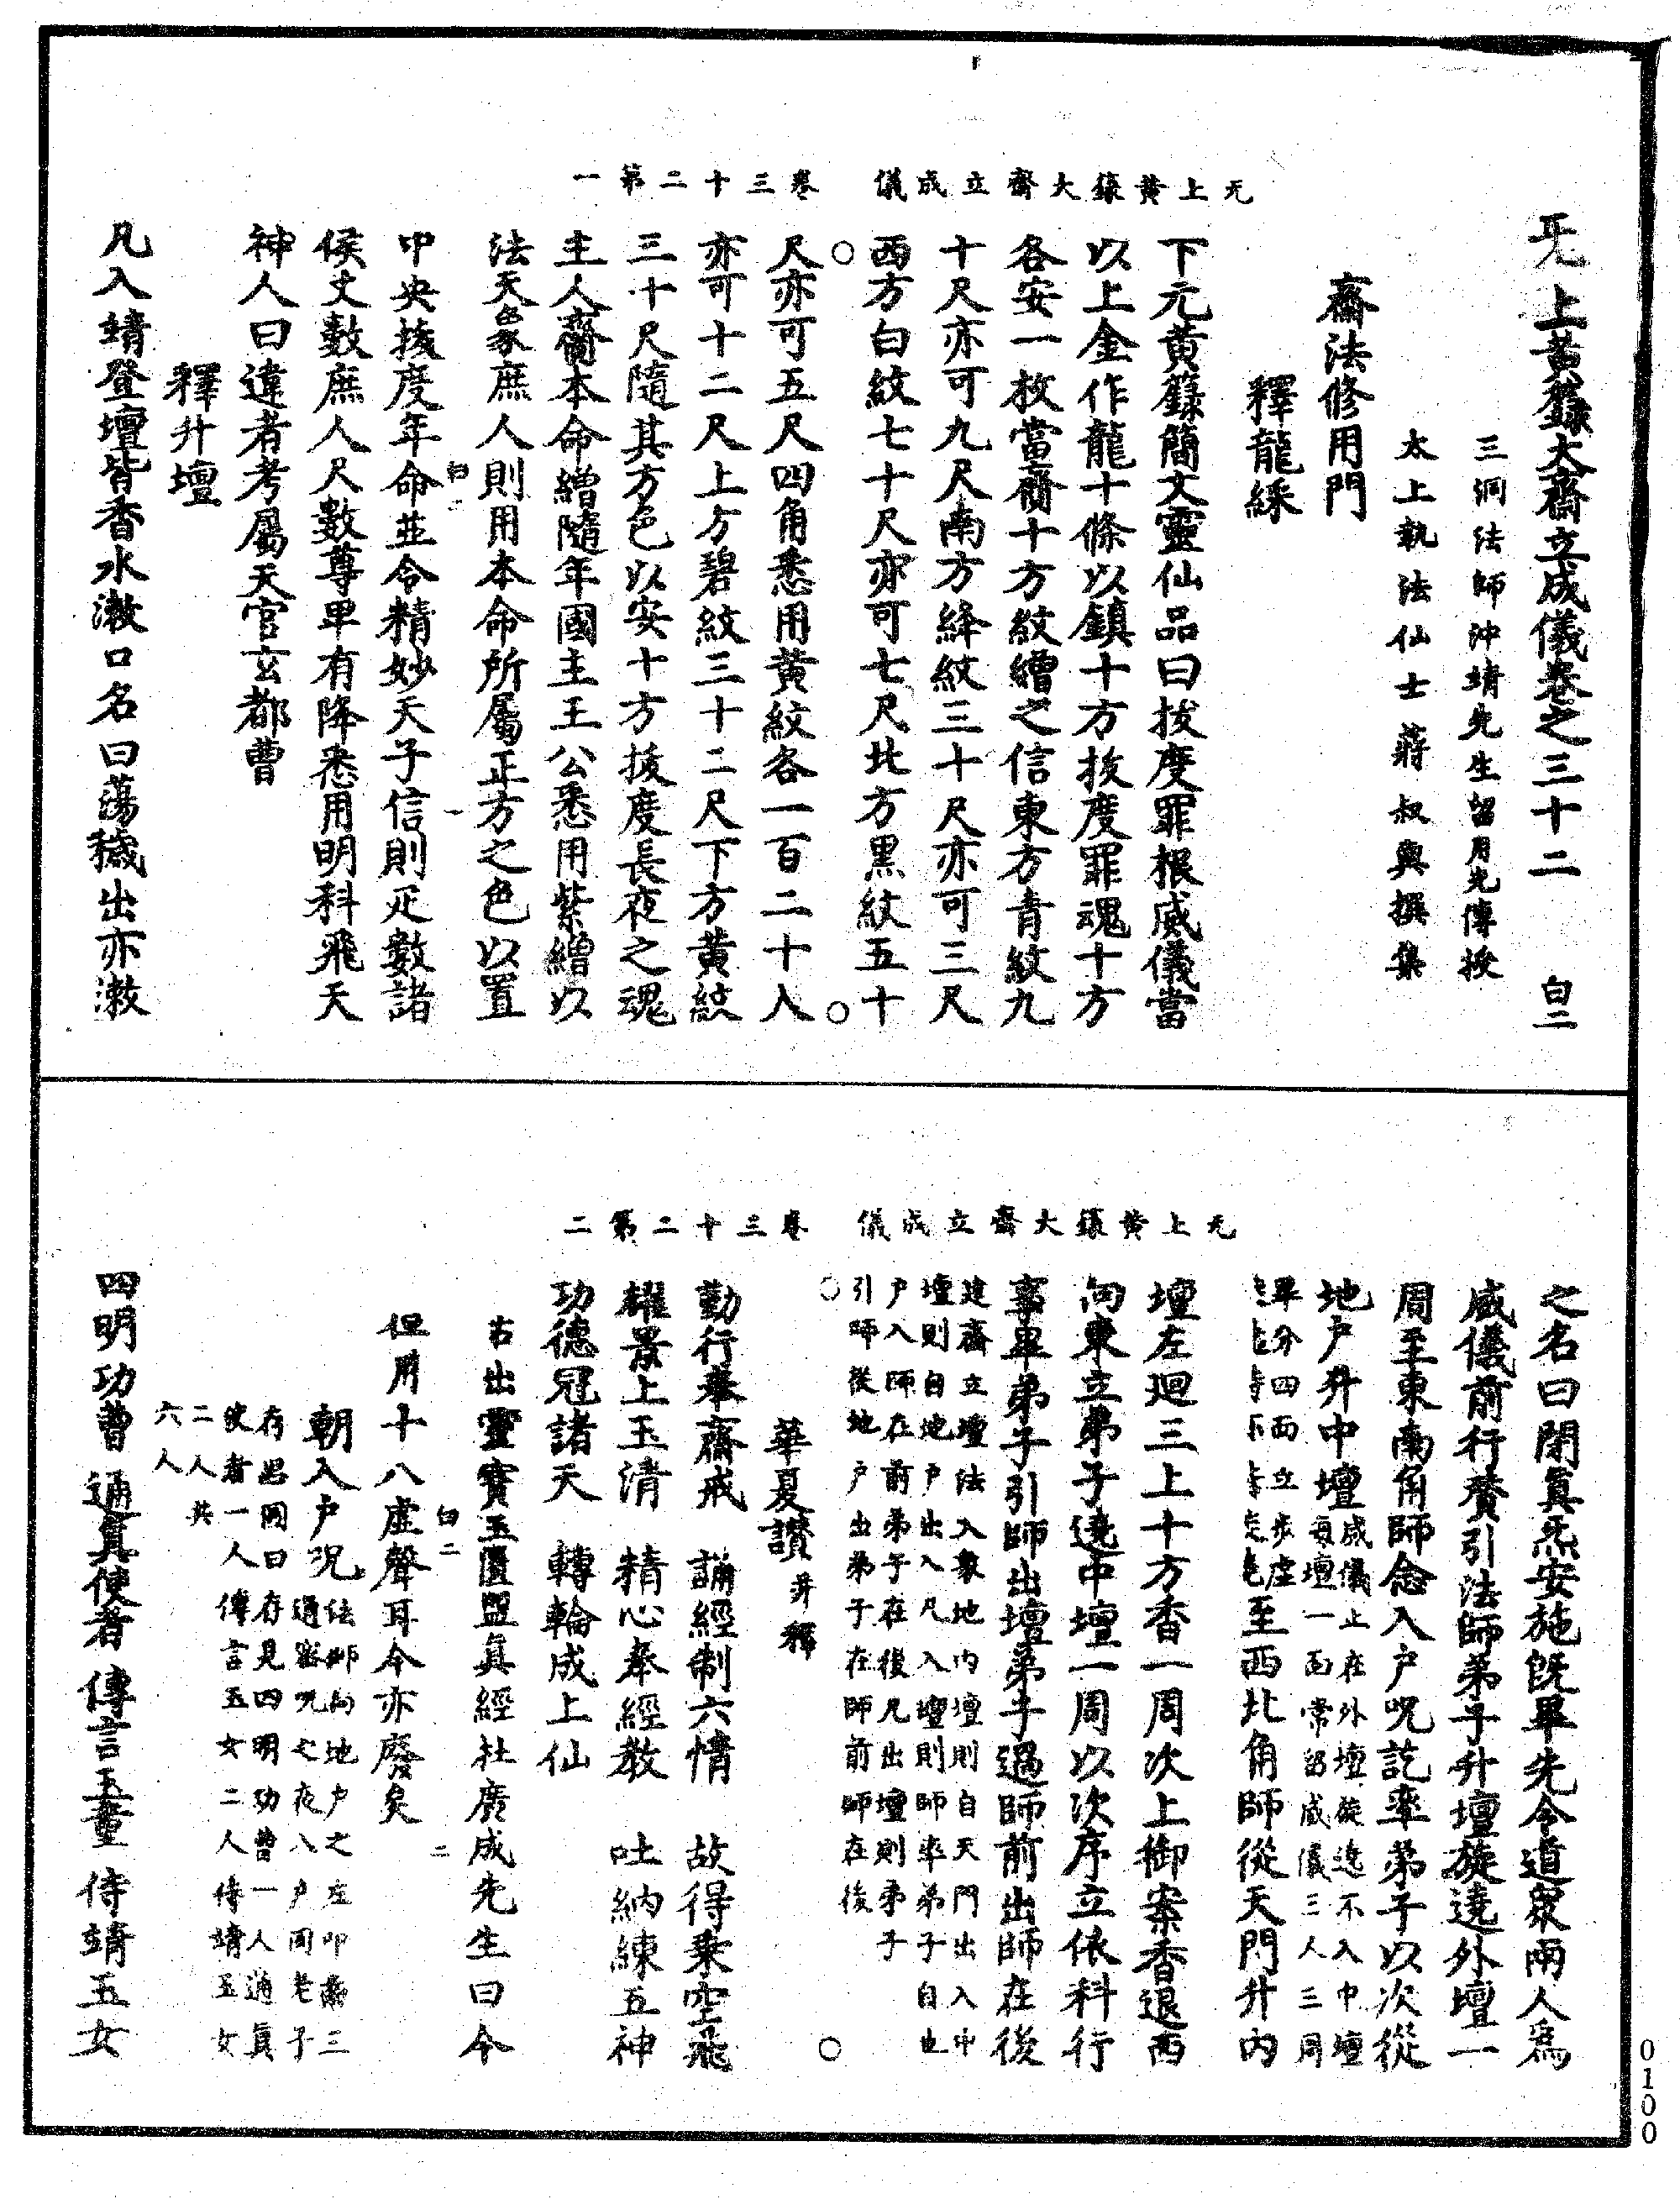 无上黃籙大齋立成儀卷之三十二　白二
三洞法師沖靖先生留用光傳授
太上執法仙士蔣叔輿撰集
齋法修用門
釋龍綵
下元黃籙簡文靈仙品曰拔度罪根威儀當
以上金作龍十條以鎮十方拔度罪魂十方
各安一枚當齋十方紋繒之信東方青紋九
十尺亦可九尺南方絳紋三十尺亦可三尺
西方白紋七十尺亦可七尺北方黑紋五十
无上黃籙大齋立成儀　卷三十二第一
尺亦可五尺四角悉用黃紋各一百二十入
亦可十二尺上方碧紋三十二尺下方黃紋
三十尺隨其方色以安十方拔度長夜之魂
主人齋本命繒隨年國主王公悉用紫繒以
法天象庶人則用本命所屬正方之色以置
白二　一
中央拔度年命並令精妙天子信則疋數諸
侯丈數庶人尺數尊卑有降悉用明科飛天
神人曰違者考屬天官玄都曹
釋升壇
凡入靖登壇皆香水漱口名曰蕩穢出亦漱
之名曰閉真炁安施既畢先令道眾兩人為
威儀前行贊引法師弟子升壇旋遶外壇一
周至東南角師念入戶呪訖率弟子以次從
地戶升中壇
威儀止在外壇旋遶不入中壇
每壇一面常留威儀三人三周
畢分四面立步虛
至西北角師從天門升內
壇左迴三上十方香一周次上御案香退西
向東立弟子遶中壇一周以次序立依科行
事畢弟子引師出壇弟子過師前出師在後
建齋立壇法入眾地內壇則自天門出入中
壇則自地戶出入凡入壇則師率弟子自也
戶入師在前弟子在後凡出壇則弟子
引師從地戶出弟子在師前師在後
无上黃籙大齋立成儀　卷三十二第二
華夏讚并釋
勤行奉齋戒　誦經制六情　故得乘空飛
耀景上玉清　精心奉經教　吐納練五神
功德冠諸天　轉輪成上仙
右出靈寶玉匱盟真經杜廣成先生曰今
白二　二
但用十八虛聲耳今亦廢矣
朝入戶呪
法師向地戶之左叩齒三
通密呪之夜八戶同老子
存思圖曰存見四明功曹一人通真
使者一人傳言玉女二人侍靖玉女
二人共
六人
四明功曹　通真使者　傳言玉童　侍靖玉女
0100